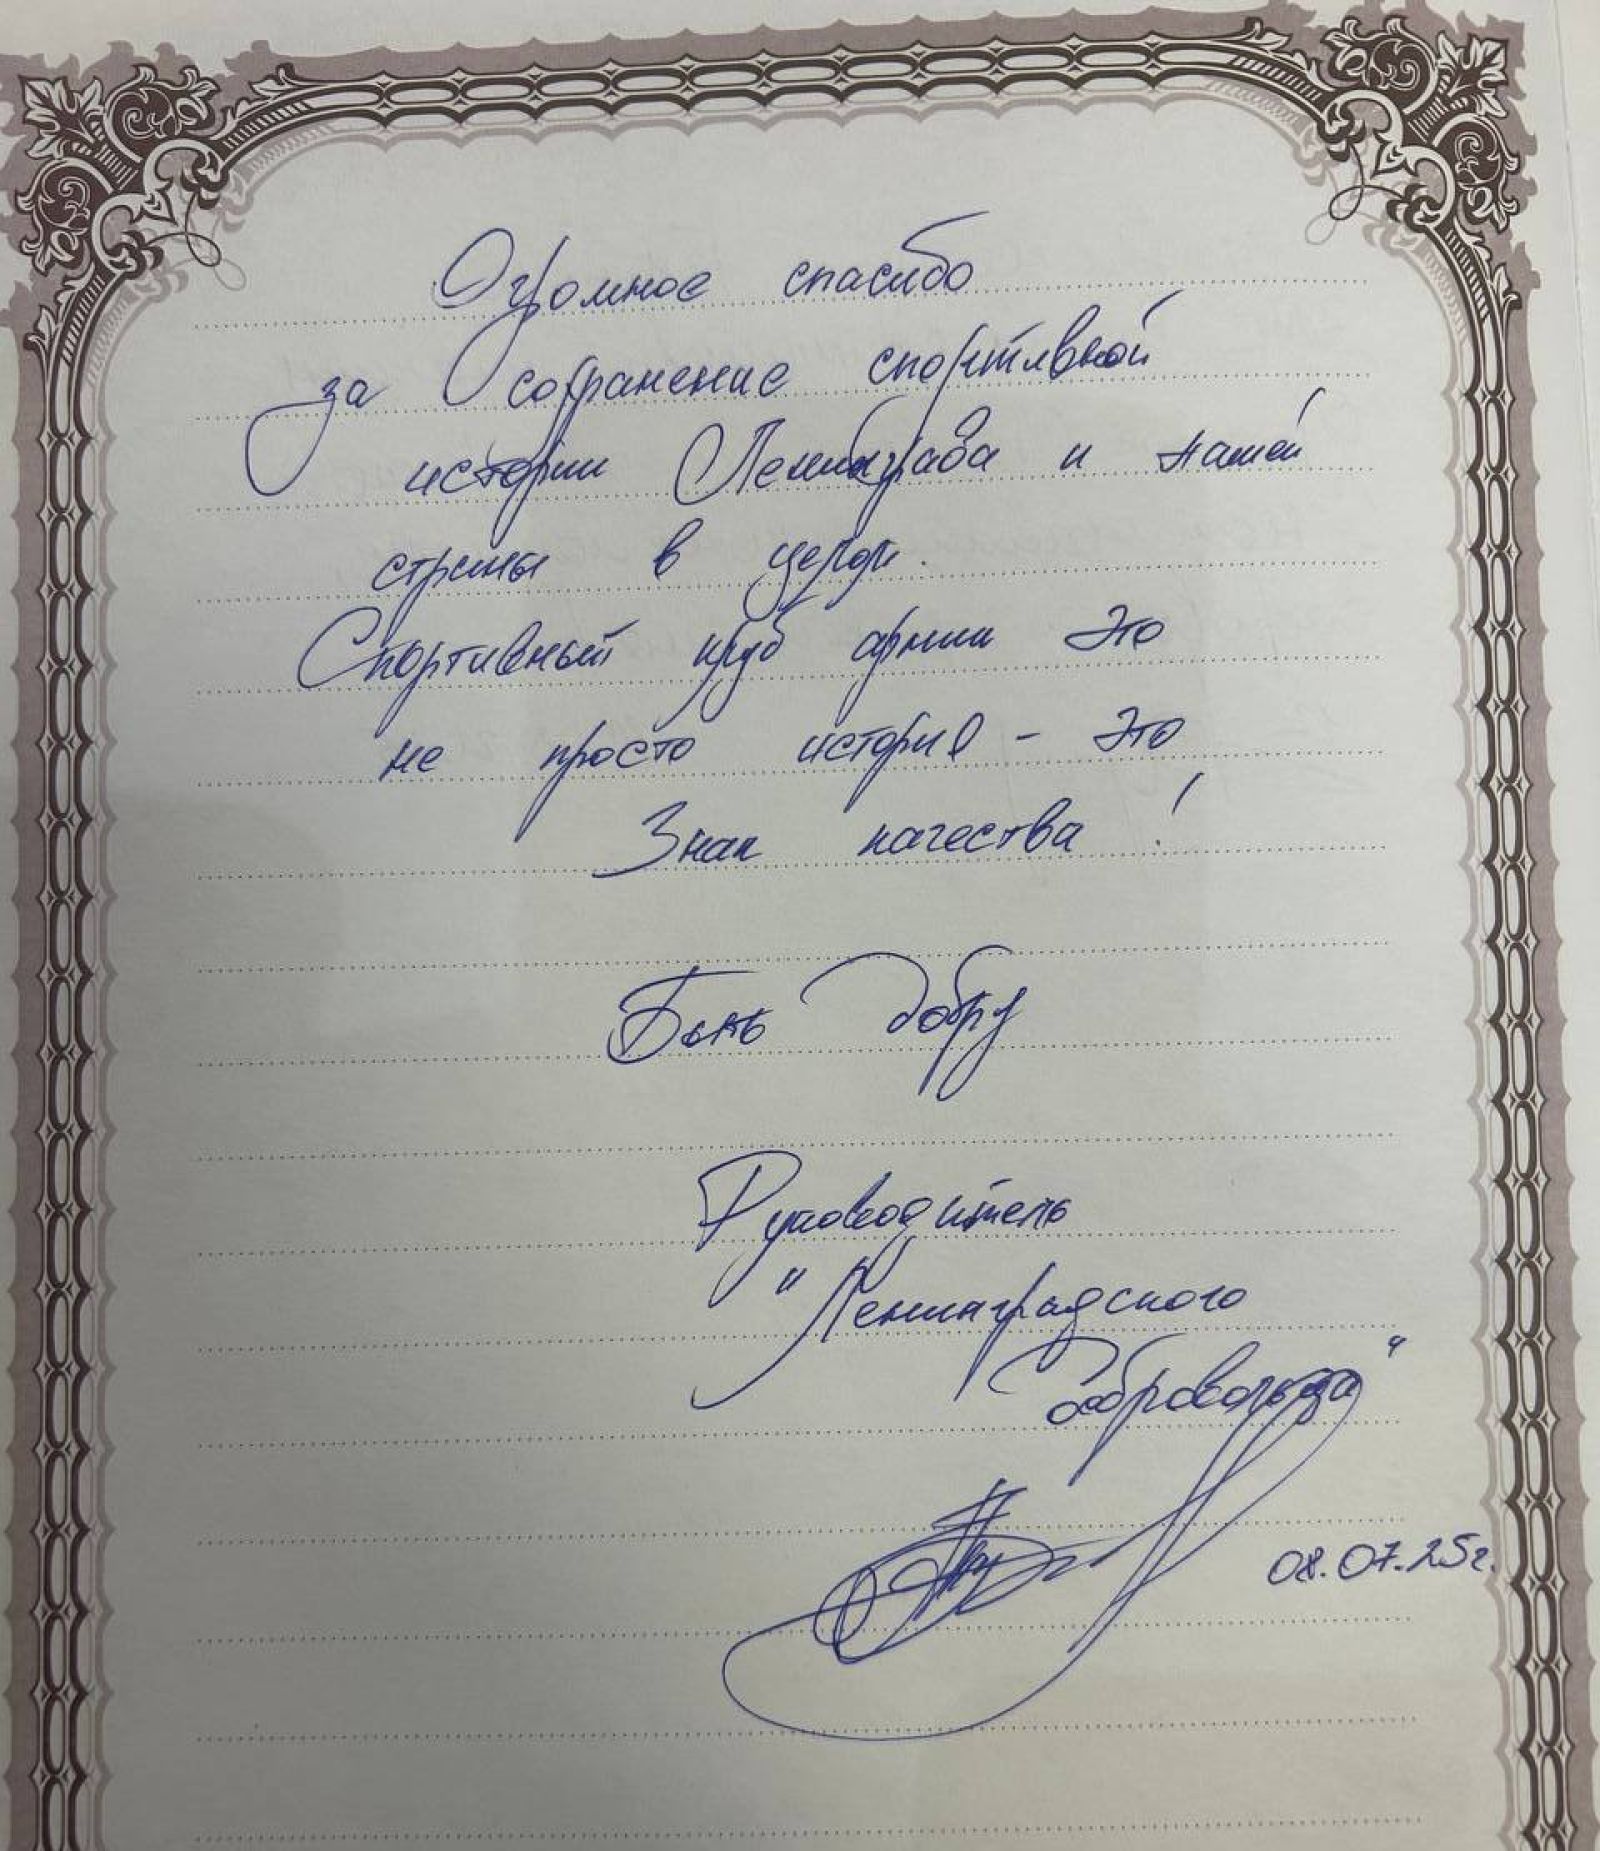 Огромное спасибо
за сохранение спортивной
истории Ленинграда и нашей
страны в целом.
Спортивный клуб армии это
не просто история - это
Знак качества!
Быть добру
Руководитель
"Ленинградского
добровольца"
08.07.25г.